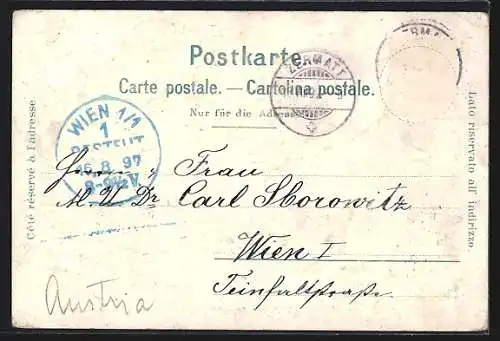 Postkarte.
Carte postale. — Cartolina postale.
Nur für die Adresse
Côté réservé à l'adresse.
Lato riservato all' indirizzo.
ZERMATT
WIEN 1/1
1
BESTELLT
8. 97
8-9½V.
Herrn u. Frau
M. U. Dr Carl Sborowitz
Wien I
Teinfaltstraße.
Austria